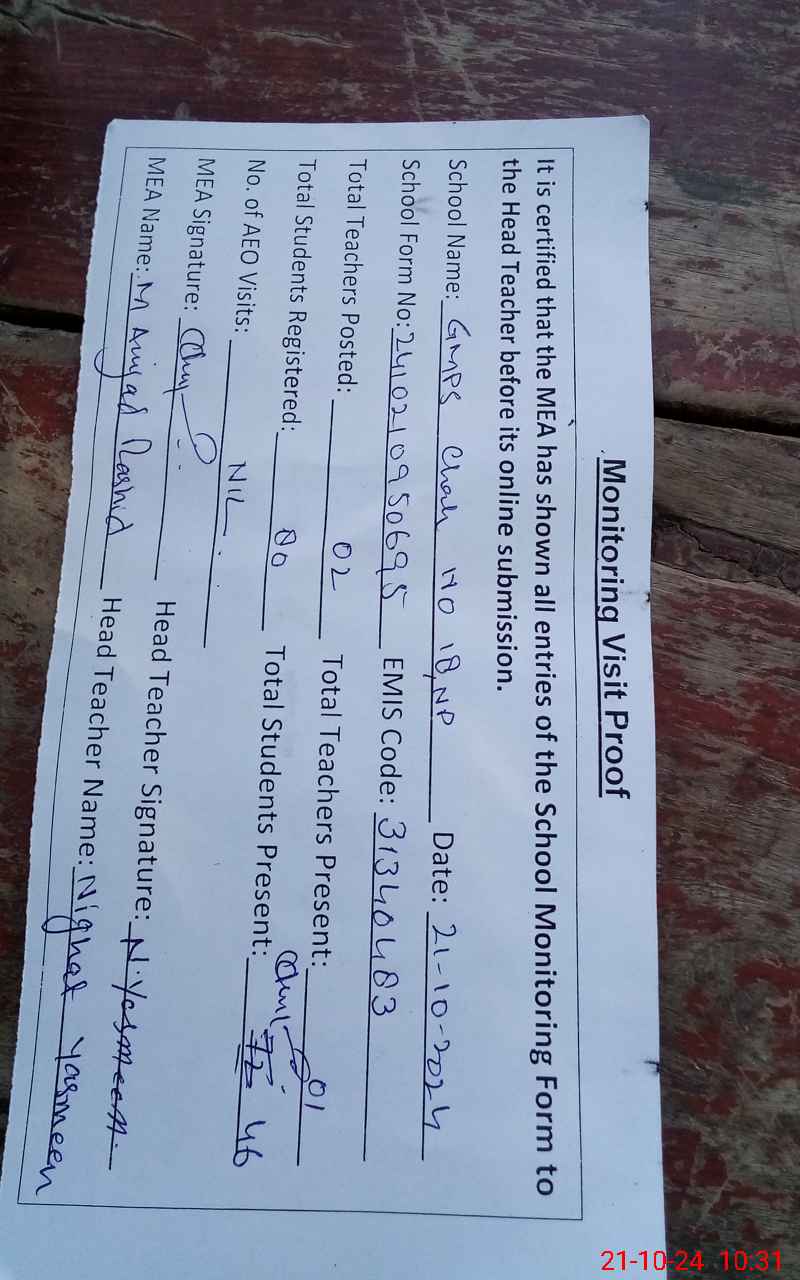 Monitoring Visit Proof
It is certified that the MEA has shown all entries of the School Monitoring Form to
the Head Teacher before its online submission.
School Name: GMPS Chah NO 18, NP Date: 21-10-2024
School Form No: 2410210950695 EMIS Code: 31340483
Total Teachers Posted: 02 Total Teachers Present: 01
Total Students Registered: 80 Total Students Present: 72 46
No. of AEO Visits: NIL
MEA Signature: Head Teacher Signature: N. Yasmeen.
MEA Name: M Amjad Rashid Head Teacher Name: Nighat Yasmeen
21-10-24 10:31